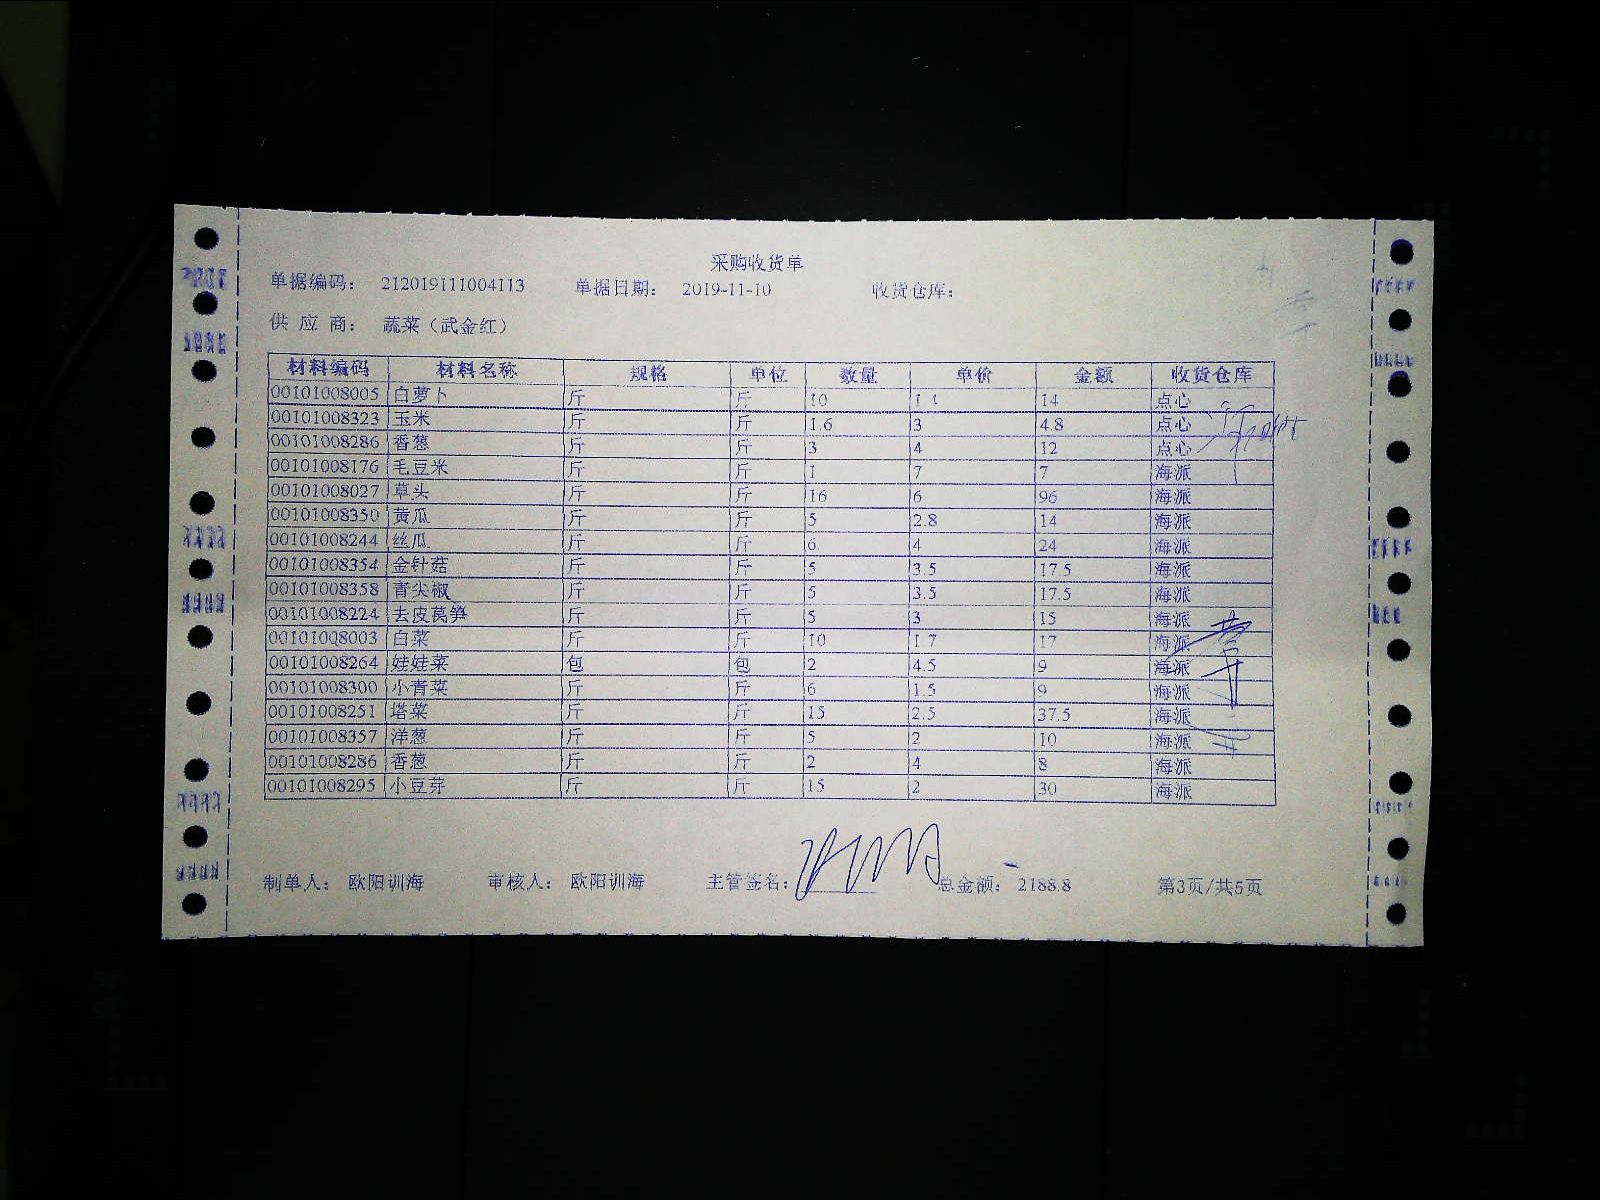 采购收货单
单据编码: 212019111004113 单据日期: 2019-11-10 收货仓库:
供 应 商: 蔬菜（武金红）
材料编码 材料名称 规格 单位 数量 单价 金额 收货仓库
00101008005 白萝卜 斤 斤 10 1.4 14 点心
00101008323 玉米 斤 斤 1.6 3 4.8 点心
00101008286 香葱 斤 斤 3 4 12 点心
00101008176 毛豆米 斤 斤 1 7 7 海派
00101008027 草头 斤 斤 16 6 96 海派
00101008350 黄瓜 斤 斤 5 2.8 14 海派
00101008244 丝瓜 斤 斤 6 4 24 海派
00101008354 金针菇 斤 斤 5 3.5 17.5 海派
00101008358 青尖椒 斤 斤 5 3.5 17.5 海派
00101008224 去皮莴笋 斤 斤 5 3 15 海派
00101008003 白菜 斤 斤 10 1.7 17 海派
00101008264 娃娃菜 包 包 2 4.5 9 海派
00101008300 小青菜 斤 斤 6 1.5 9 海派
00101008251 塔菜 斤 斤 15 2.5 37.5 海派
00101008357 洋葱 斤 斤 5 2 10 海派
00101008286 香葱 斤 斤 2 4 8 海派
00101008295 小豆芽 斤 斤 15 2 30 海派
制单人: 欧阳训海 审核人: 欧阳训海 主管签名: 总金额: 2188.8 第3页/共5页